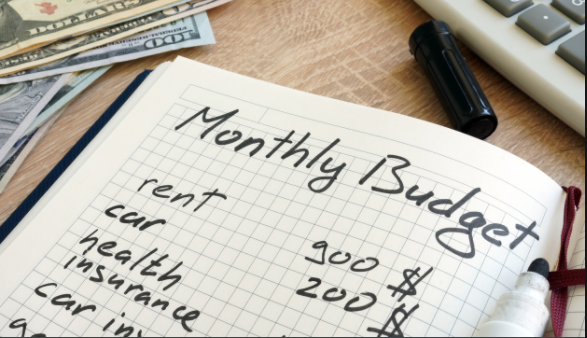 100
Monthly Budget
rent 900 $
car 200 $
health
insurance
car